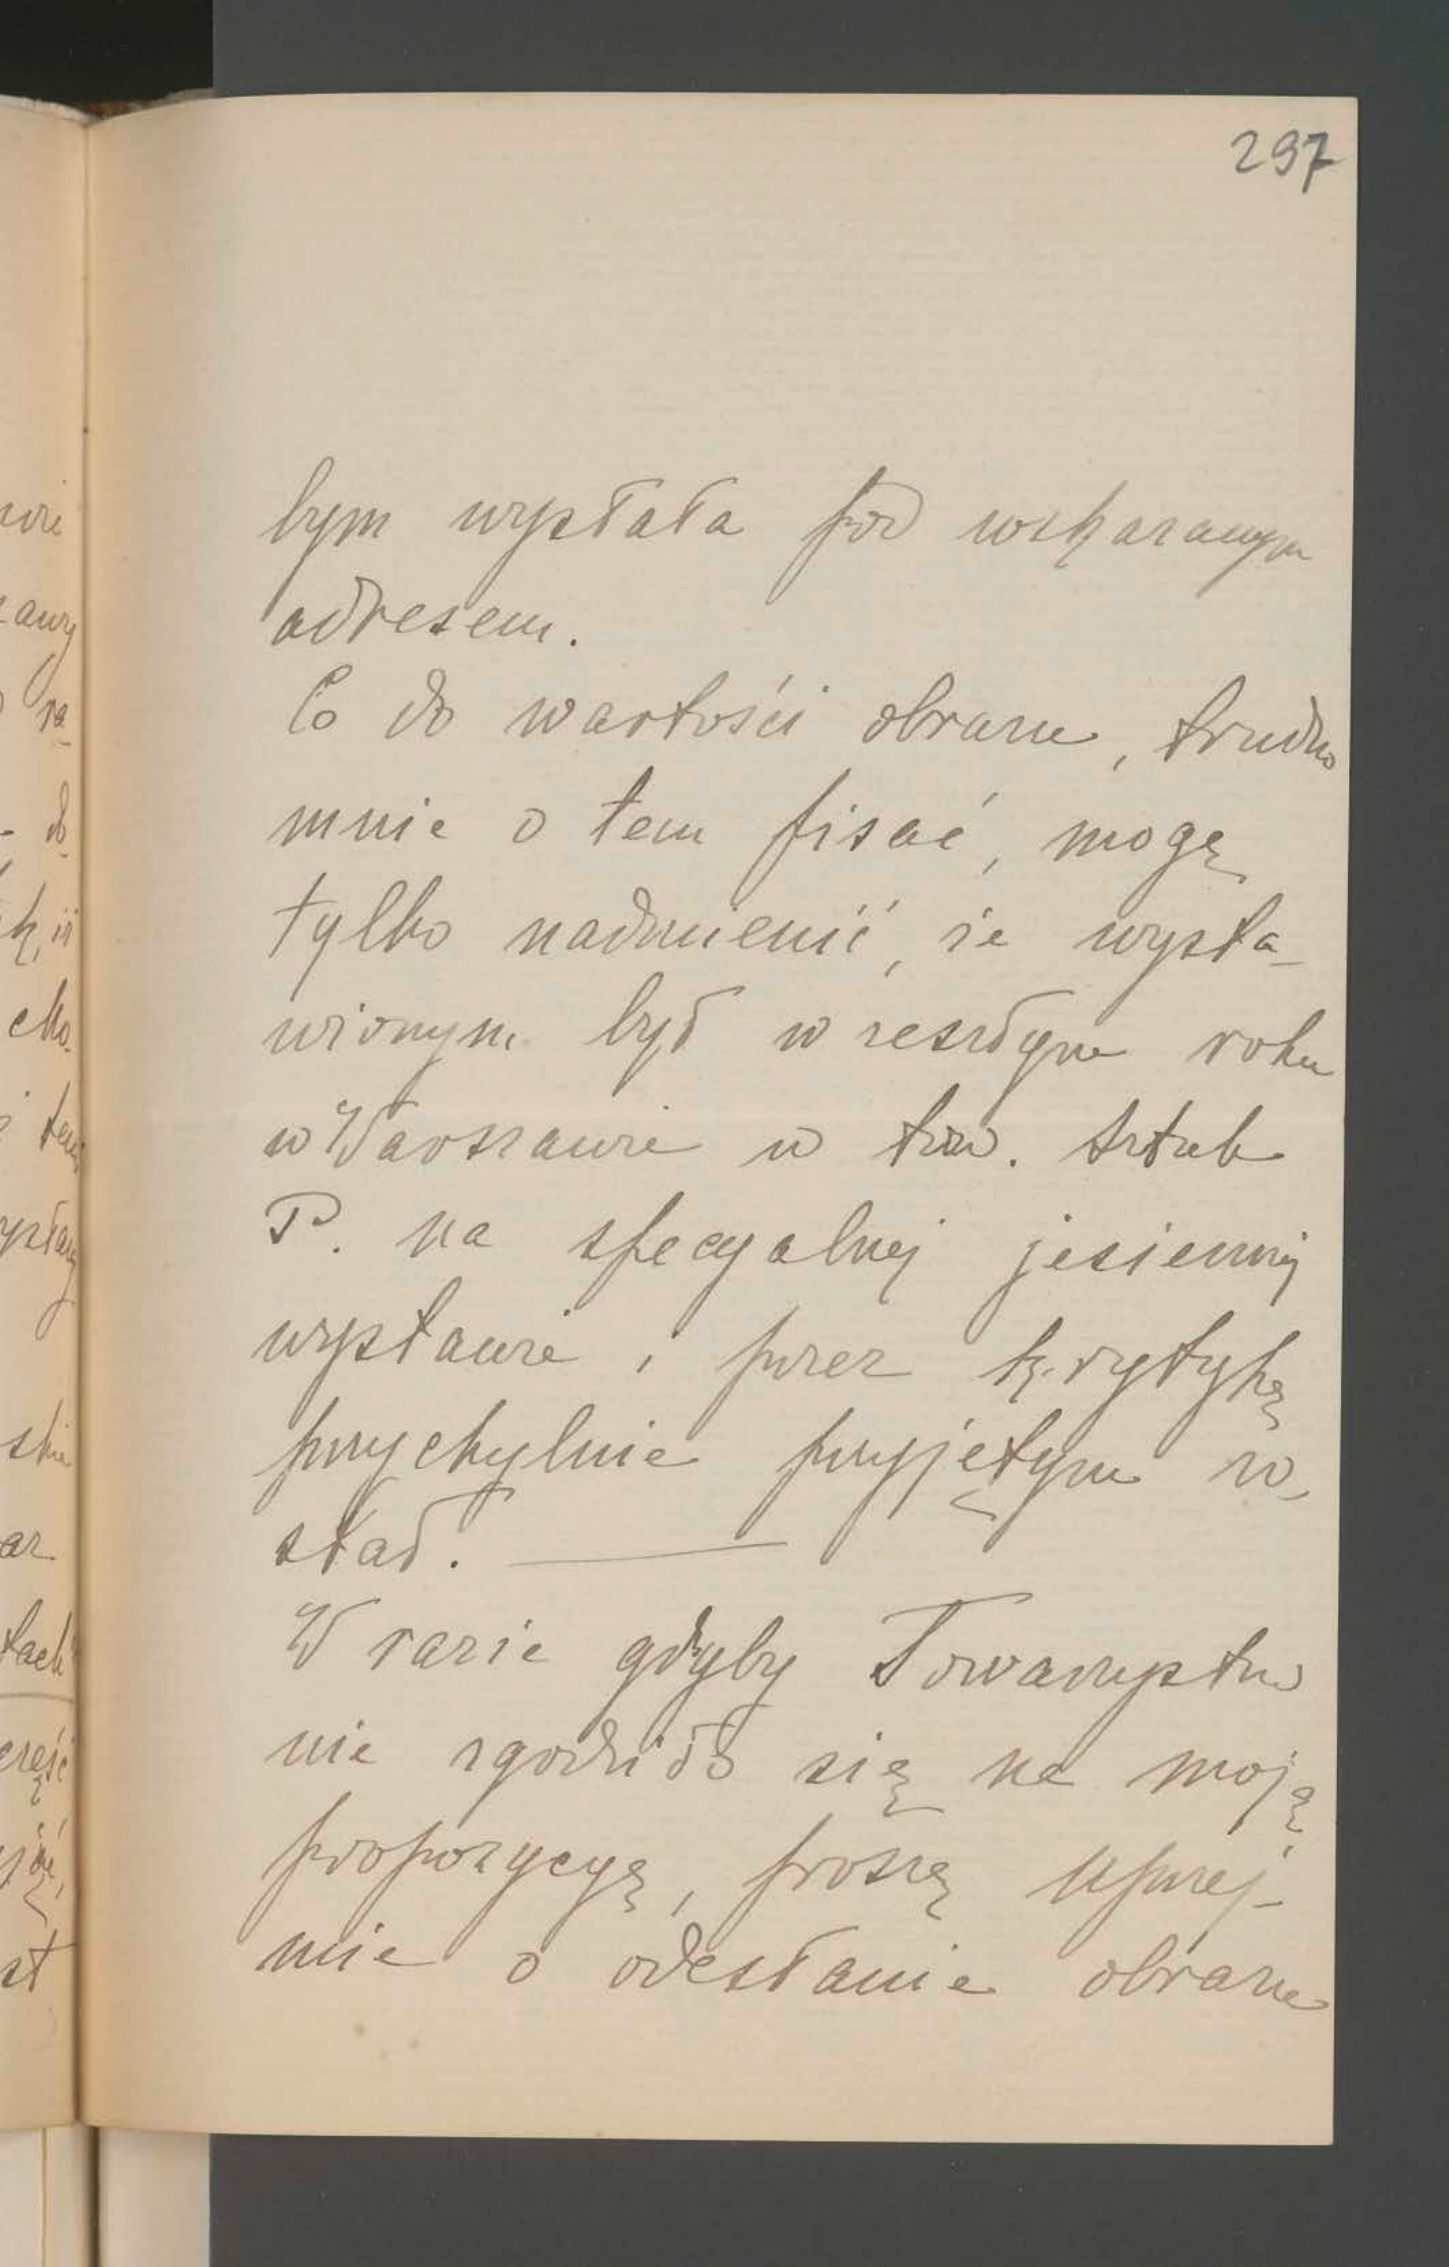 297
bym wysłała pod wskazanym
adresem.
Co do wartości obrazu, trudno
mnie o tem pisać, mogę
tylko nadmienić, że wysta-
wionym był w zeszłym roku
w Warszawie w tow. sztuk
P. na specyalnej jesiennej
wystawie i przez krytykę
przychylnie przyjętym zo-
stał. —
W razie gdyby Towarzystwo
nie zgodziło się na moją
propozycyę, proszę uprzej-
mie o odesłanie obrazu